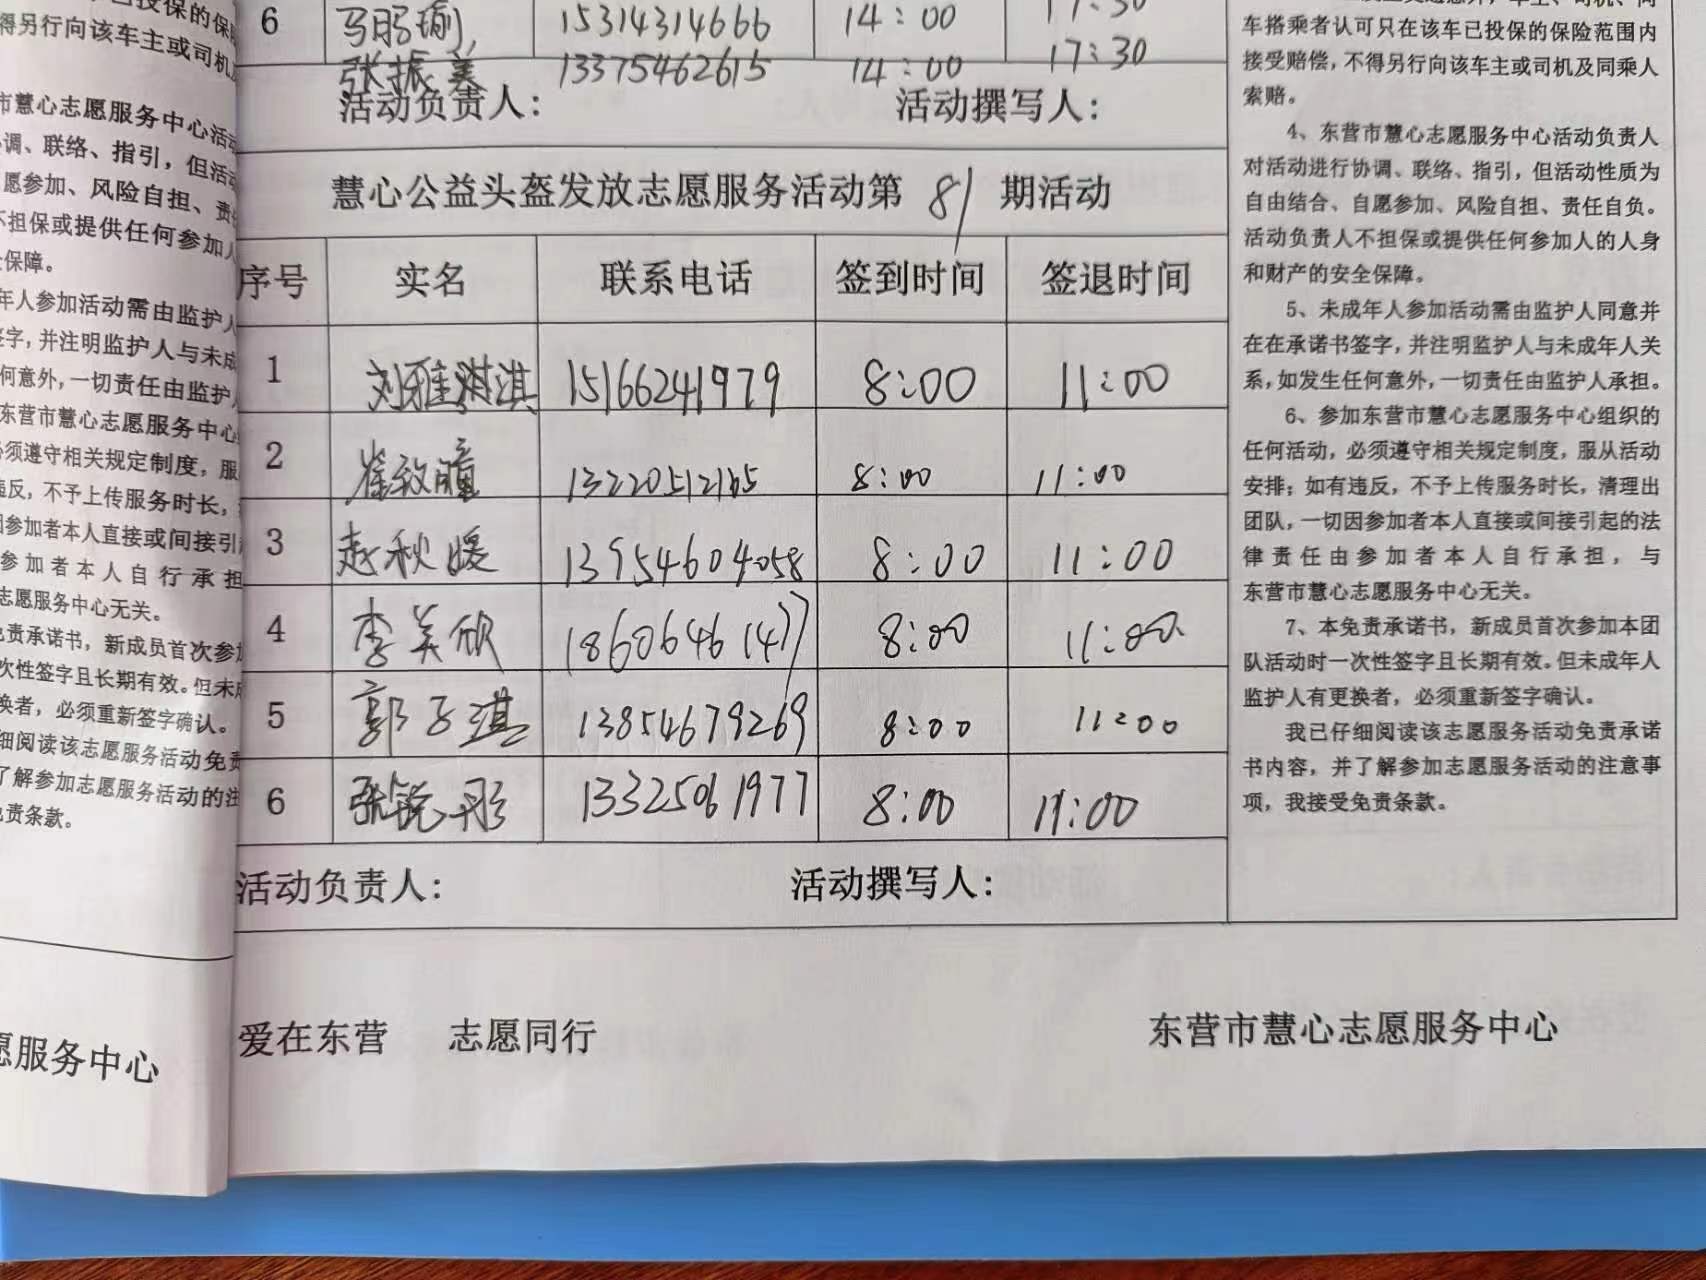 6 马明瑜 15314314666 14:00 17:30
张振美 13375462615 14:00 17:30
活动负责人: 活动撰写人:
慧心公益头盔发放志愿服务活动第 81 期活动
序号 实名 联系电话 签到时间 签退时间
1 刘雅淇 15166241979 8:00 11:00
2 崔致瞳 13220512165 8:00 11:00
3 赵秋媛 13954604058 8:00 11:00
4 李美欣 18606461477 8:00 11:00
5 郭子淇 13854679269 8:00 11:00
6 张锐彤 13325061977 8:00 11:00
活动负责人: 活动撰写人:
车搭乘者认可只在该车已投保的保险范围内
接受赔偿，不得另行向该车主或司机及同乘人
索赔。
4、东营市慧心志愿服务中心活动负责人
对活动进行协调、联络、指引，但活动性质为
自由结合、自愿参加、风险自担、责任自负。
活动负责人不担保或提供任何参加人的人身
和财产的安全保障。
5、未成年人参加活动需由监护人同意并
在在承诺书签字，并注明监护人与未成年人关
系，如发生任何意外，一切责任由监护人承担。
6、参加东营市慧心志愿服务中心组织的
任何活动，必须遵守相关规定制度，服从活动
安排；如有违反，不予上传服务时长，清理出
团队，一切因参加者本人直接或间接引起的法
律责任由参加者本人自行承担，与
东营市慧心志愿服务中心无关。
7、本免责承诺书，新成员首次参加本团
队活动时一次性签字且长期有效。但未成年人
监护人有更换者，必须重新签字确认。
我已仔细阅读该志愿服务活动免责承诺
书内容，并了解参加志愿服务活动的注意事
项，我接受免责条款。
得另行向该车主或司机
市慧心志愿服务中心活动
调、联络、指引，但活动
愿参加、风险自担、责
不担保或提供任何参加人
保障。
年人参加活动需由监护人
签字，并注明监护人与未成
何意外，一切责任由监护人
东营市慧心志愿服务中心
必须遵守相关规定制度，服
违反，不予上传服务时长，
因参加者本人直接或间接引起
参加者本人自行承担
志愿服务中心无关。
免责承诺书，新成员首次参加
次性签字且长期有效。但未成
换者，必须重新签字确认。
细阅读该志愿服务活动免责
了解参加志愿服务活动的注
免责条款。
愿服务中心
爱在东营 志愿同行 东营市慧心志愿服务中心